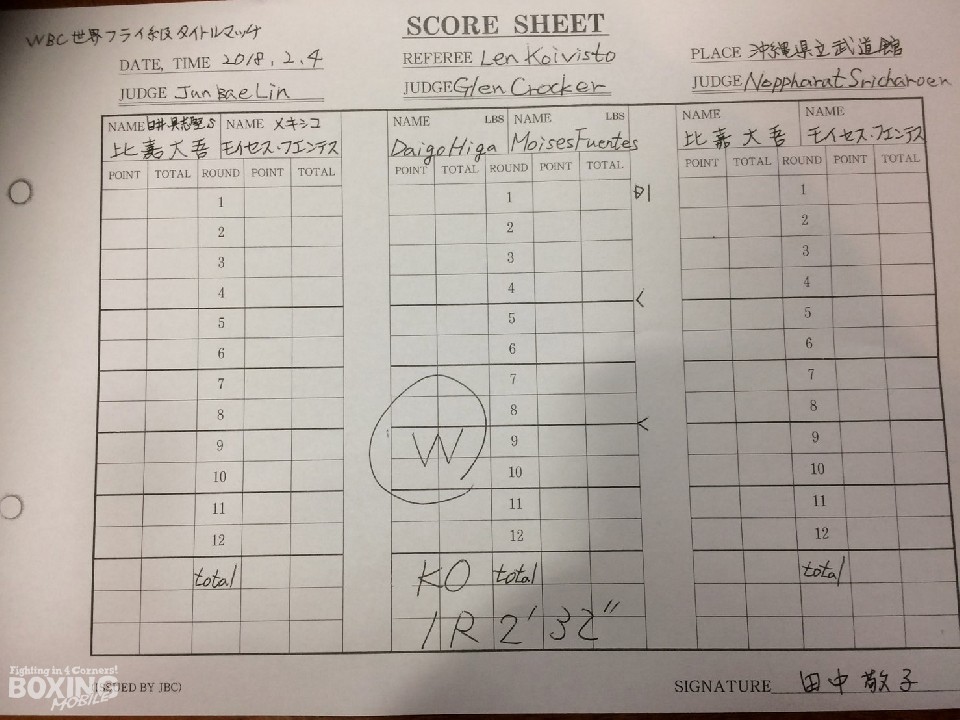 SCORE SHEET
WBC世界フライ級タイトルマッチ
DATE, TIME 2018.2.4
REFEREE Len Koivisto
PLACE 沖縄県立武道館
JUDGE Jun Bae Lin
JUDGE Glen Crocker
JUDGE Neppharat Sricharoen
NAME 白井・具志堅S NAME メキシコ
比嘉大吾 モイセス・フエンテス
NAME LBS NAME LBS
Daigo Higa Moises Fuentes
NAME NAME
比嘉大吾 モイセス・フエンテス
POINT TOTAL ROUND POINT TOTAL
POINT TOTAL ROUND POINT TOTAL
POINT TOTAL ROUND POINT TOTAL
1 1 1
2 2 2
3 3 3
4 4 4
5 5 5
6 6 6
7 7 7
8 8 8
W
9 9 9
10 10 10
11 11 11
12 12 12
total KO total total
1R 2'32"
Fighting in 4 Corners!
BOXING
MOBILE
(ISSUED BY JBC)
SIGNATURE 田中敬子